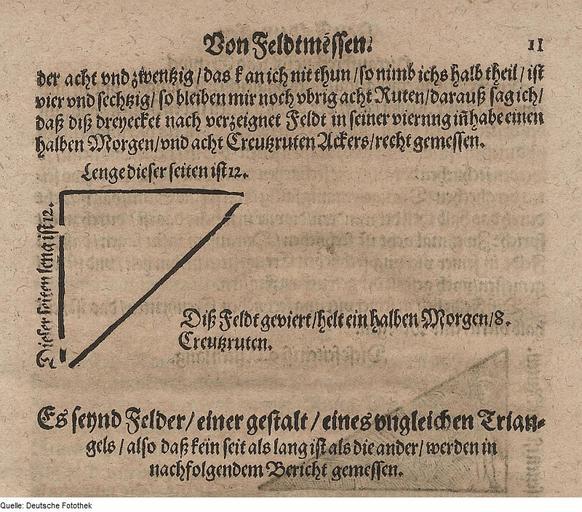 Von Feldtmessen.
11
der acht vnd zwentzig / das kan ich nit thun / so nimb ichs halb theil / ist
vier vnd sechtzig / so bleiben mir noch vbrig acht Ruten / darauß sag ich /
daß diß dreyecket nach verzeignet Feldt in seiner vierung iñhabe einen
halben Morgen / vnd acht Creutzruten Ackers / recht gemessen.
Lenge dieser seiten ist 12.
Dieser seiten leng ist 12.
Diß Feldt geviert / helt ein halben Morgen / 8.
Creutzruten.
Es seynd Felder / einer gestalt / eines vngleichen Trian-
gels / also daß kein seit als lang ist als die ander / werden in
nachfolgendem Bericht gemessen.
Quelle: Deutsche Fotothek